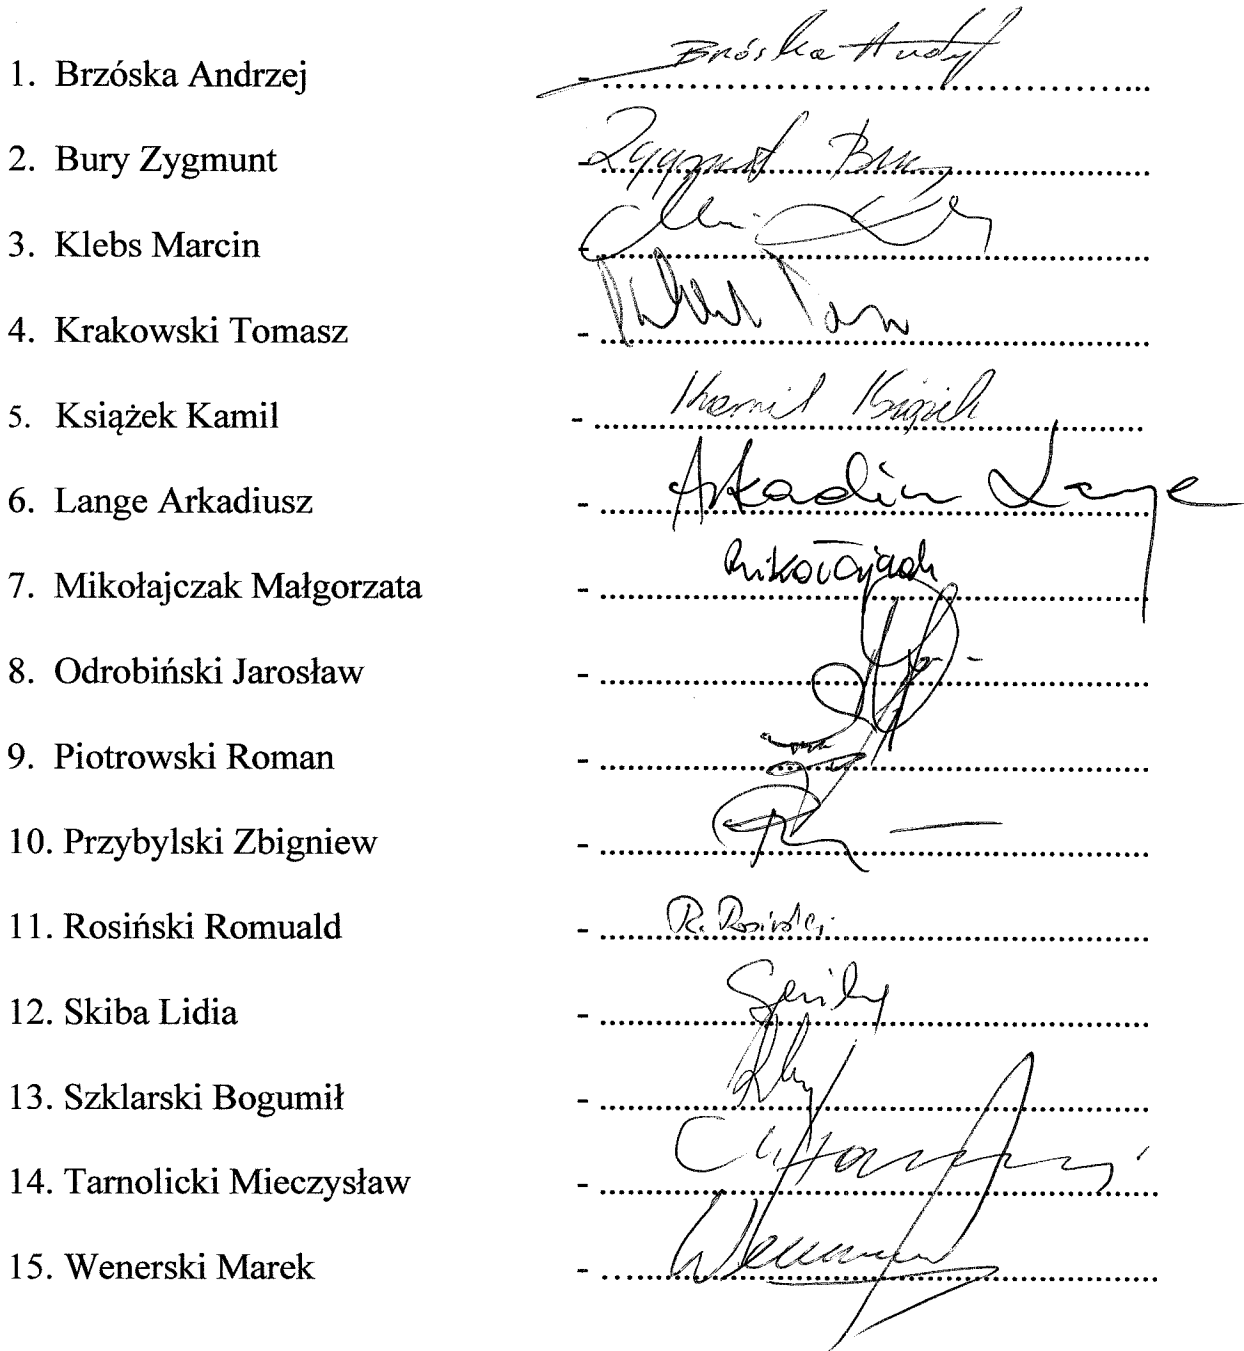 1. Brzóska Andrzej - Bróska
2. Bury Zygmunt - Zygmunt Bury
3. Klebs Marcin -
4. Krakowski Tomasz -
5. Książek Kamil - Kamil Książek
6. Lange Arkadiusz - Arkadiu Lange
7. Mikołajczak Małgorzata -
8. Odrobiński Jarosław -
9. Piotrowski Roman -
10. Przybylski Zbigniew -
11. Rosiński Romuald - R. Rosiński
12. Skiba Lidia -
13. Szklarski Bogumił -
14. Tarnolicki Mieczysław -
15. Wenerski Marek -